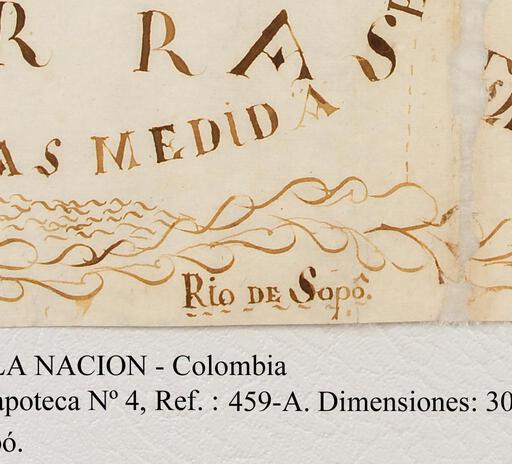 R R A S
AS MEDIDA
Rio DE Sopô.
LA NACION - Colombia
apoteca Nº 4, Ref. : 459-A. Dimensiones: 30
pó.